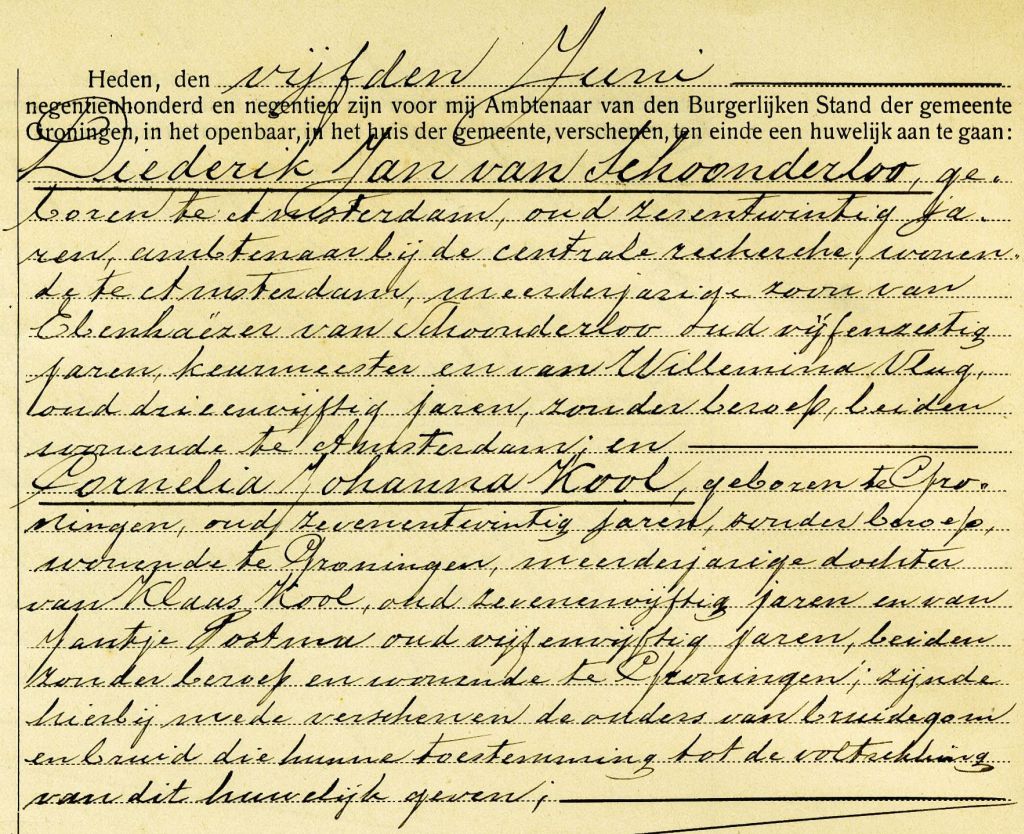 Heden, den vijfden Juni
negentienhonderd en negentien zijn voor mij Ambtenaar van den Burgerlijken Stand der gemeente
Groningen, in het openbaar, in het huis der gemeente, verschenen, ten einde een huwelijk aan te gaan:
Diederik Jan van Schoonderloo, ge-
boren te Amsterdam, oud zesentwintig ja-
ren, ambtenaar bij de centrale recherche, wonen-
de te Amsterdam, meerderjarige zoon van
Ebenhaëzer van Schoonderloo oud vijfenzestig
jaren, keurmeester en van Willemina Vlug,
oud drieenvijftig jaren, zonder beroep, beiden
wonende te Amsterdam; en
Cornelia Johanna Kool, geboren te Gro-
ningen, oud zevenentwintig jaren, zonder beroep,
wonende te Groningen, meerderjarige dochter
van Klaas Kool, oud zevenenvijftig jaren en van
Jantje Postma oud vijfenvijftig jaren, beiden
zonder beroep en wonende te Groningen; zijnde
hierbij mede verschenen de ouders van bruidegom
en bruid die hunne toestemming tot de voltrekking
van dit huwelijk geven;